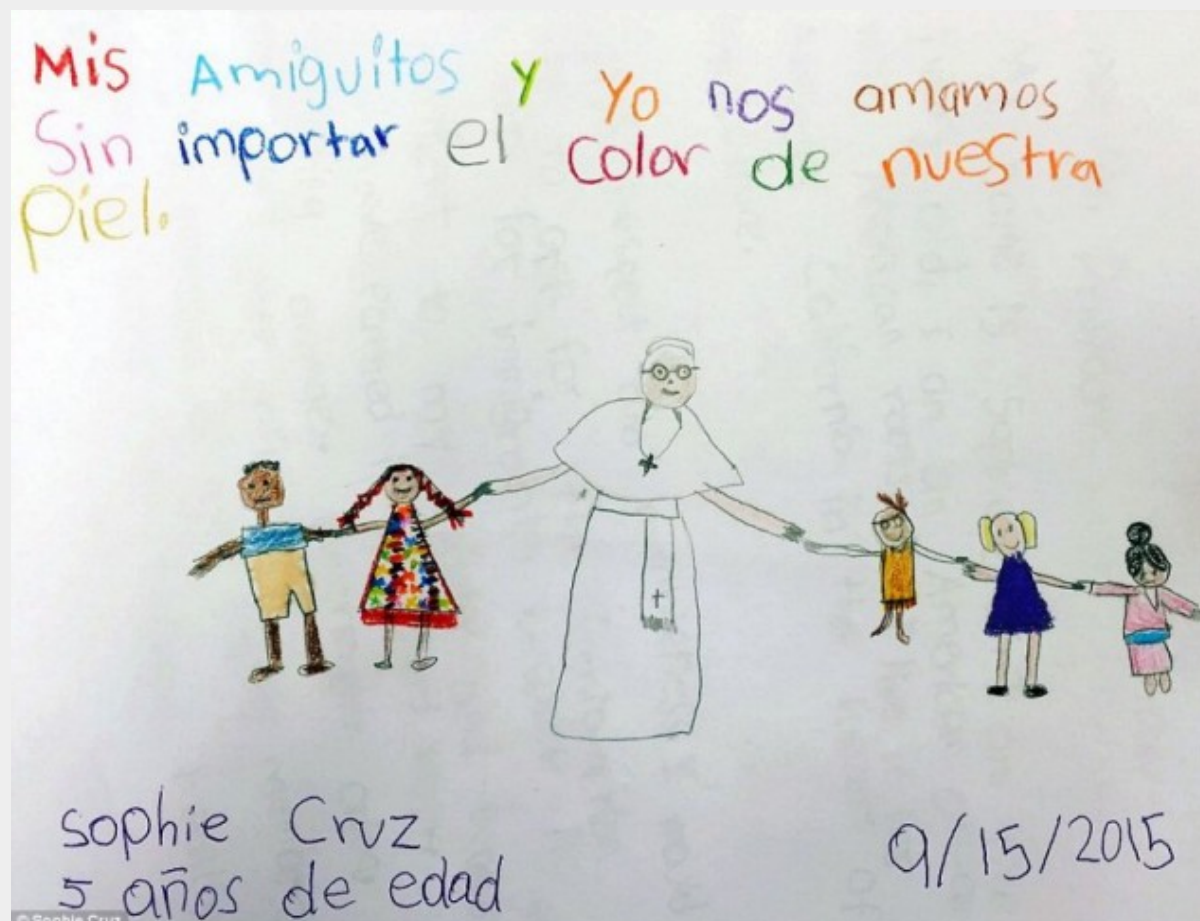 Mis Amiguitos y Yo nos amamos
Sin importar el Color de nuestra
Piel.
Sophie Cruz
5 años de edad
9/15/2015
© Sophie Cruz